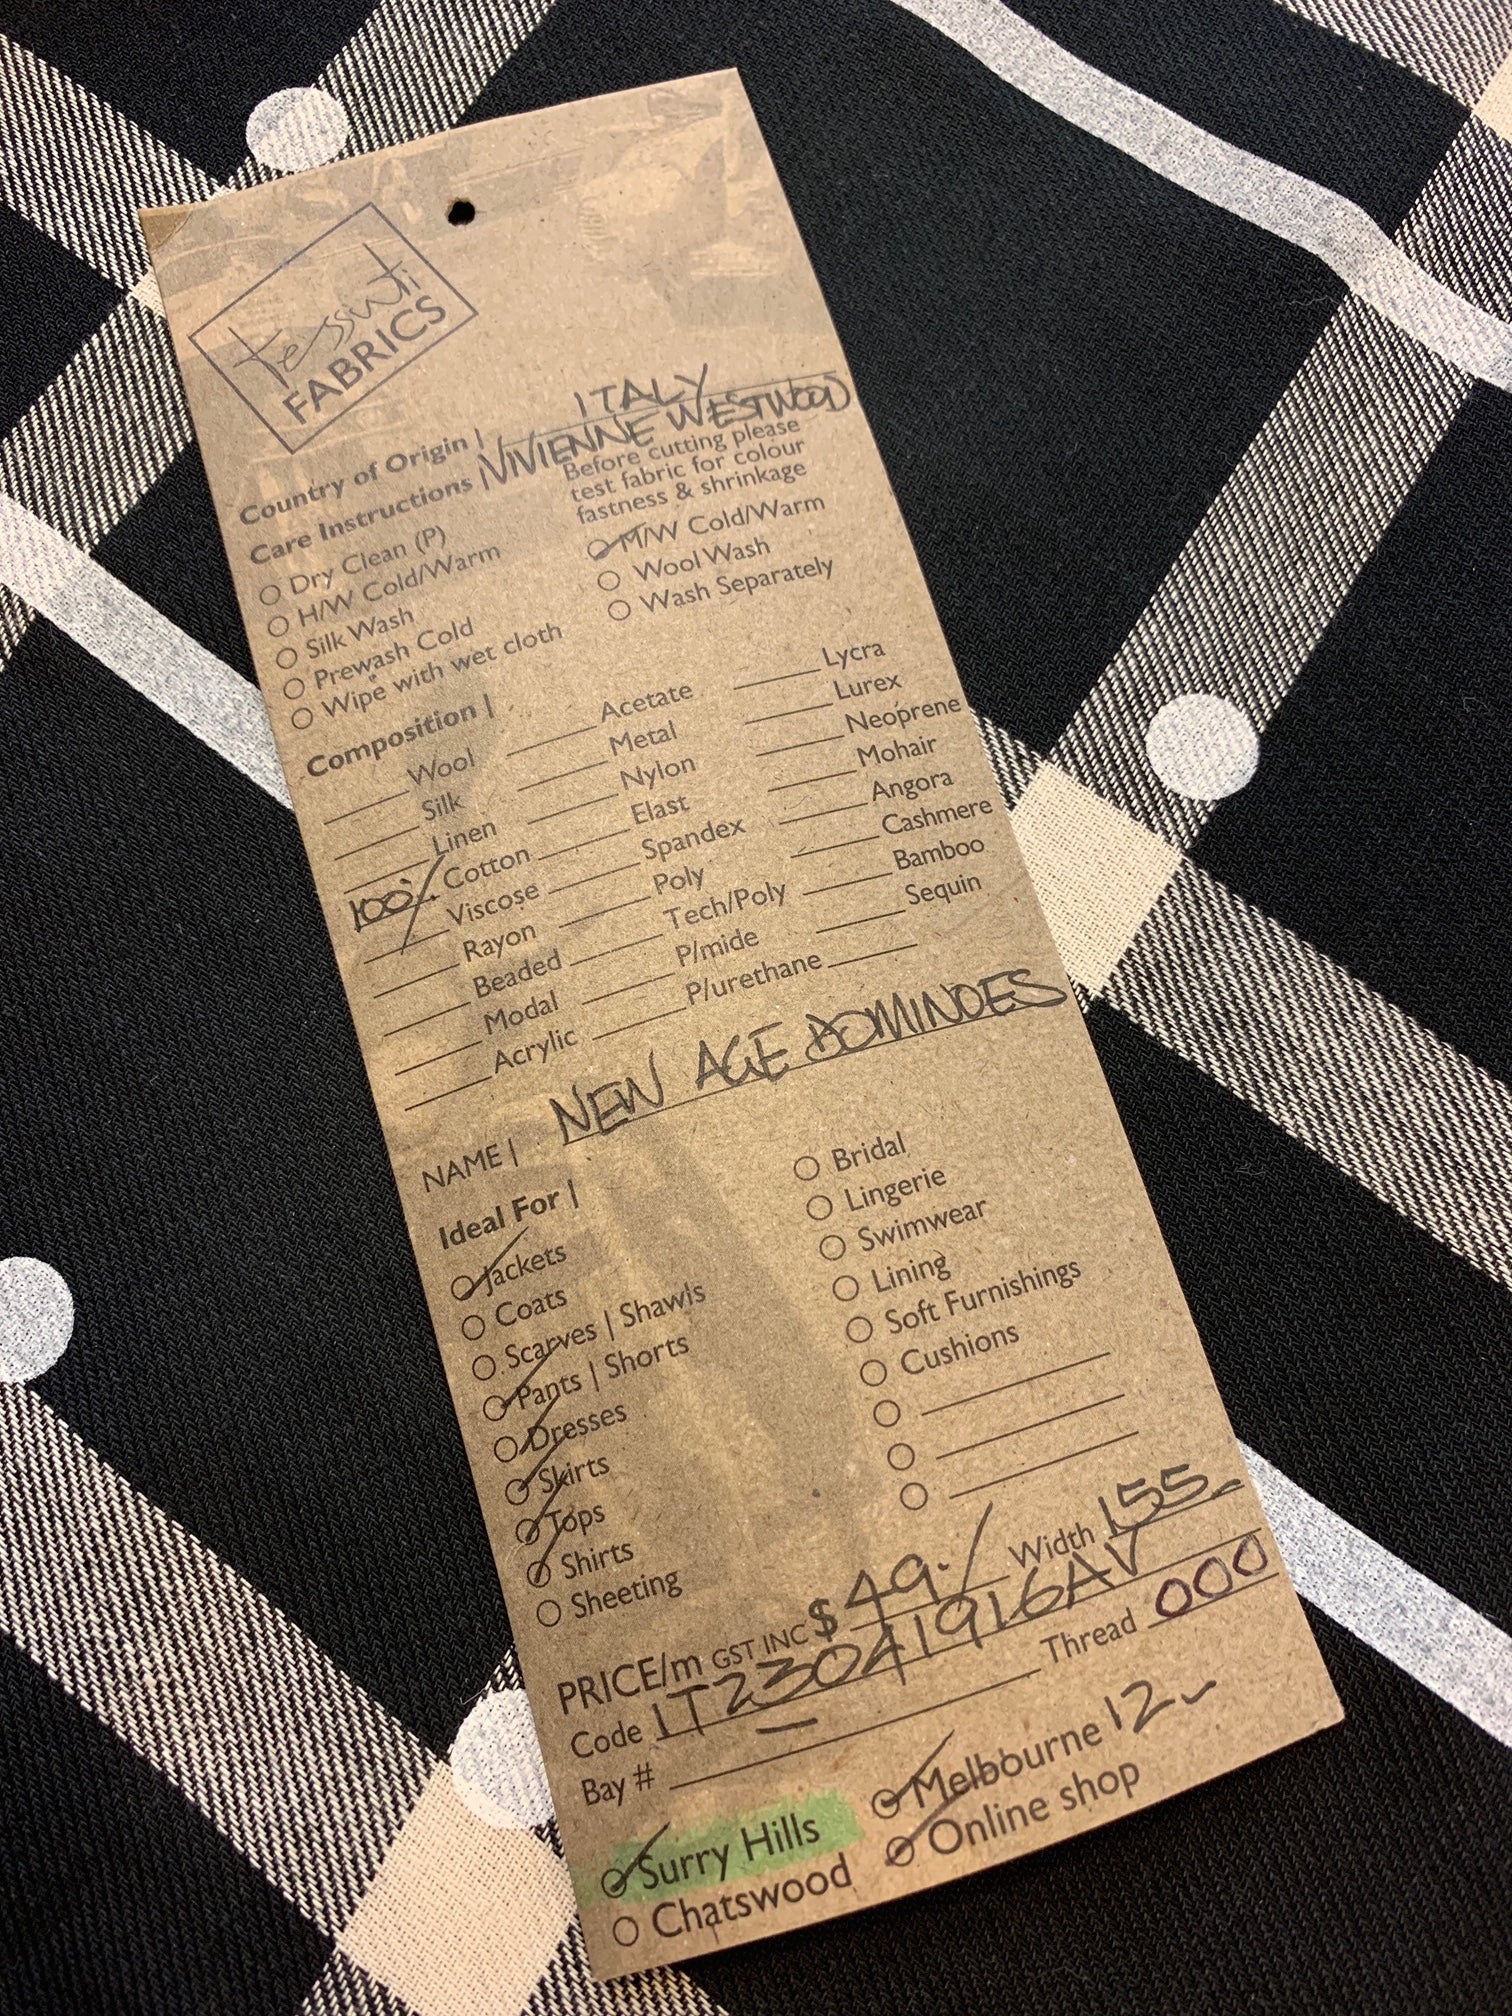 tessuti
FABRICS
Country of Origin | ITALY
VIVIENNE WESTWOOD
Care Instructions
Before cutting please
test fabric for colour
fastness & shrinkage
Dry Clean (P)
H/W Cold/Warm
Silk Wash
Prewash Cold
Wipe with wet cloth
M/W Cold/Warm
Wool Wash
Wash Separately
Composition |
Wool
Silk
Linen
100% Cotton
Viscose
Rayon
Beaded
Modal
Acrylic
Acetate
Metal
Nylon
Elast
Spandex
Poly
Tech/Poly
P/mide
P/urethane
Lycra
Lurex
Neoprene
Mohair
Angora
Cashmere
Bamboo
Sequin
NAME | NEW AGE DOMINOES
Ideal For |
Jackets
Coats
Scarves | Shawls
Pants | Shorts
Dresses
Skirts
Tops
Shirts
Sheeting
Bridal
Lingerie
Swimwear
Lining
Soft Furnishings
Cushions
PRICE/m GST INC $ 49./ Width 155
Code IT23041916AV
Bay # Thread 000
Surry Hills
Chatswood
Melbourne 12
Online shop